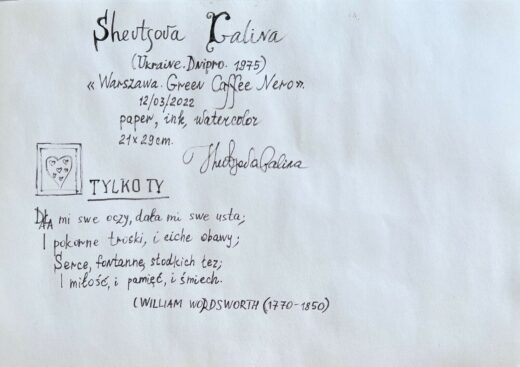 Shevtsova Galina
(Ukraine. Dnipro. 1975)
«Warszawa. Green Caffee Nero».
12/03/2022
paper, ink, watercolor
21x29cm.
Shevtsova Galina
TYLKO TY
Dała mi swe oczy, dała mi swe usta;
I pokorne troski, i ciche obawy;
Serce, fontannę, słodkich łez;
I miłość, i pamięć, i śmiech.
(WILLIAM WORDSWORTH (1770-1850)